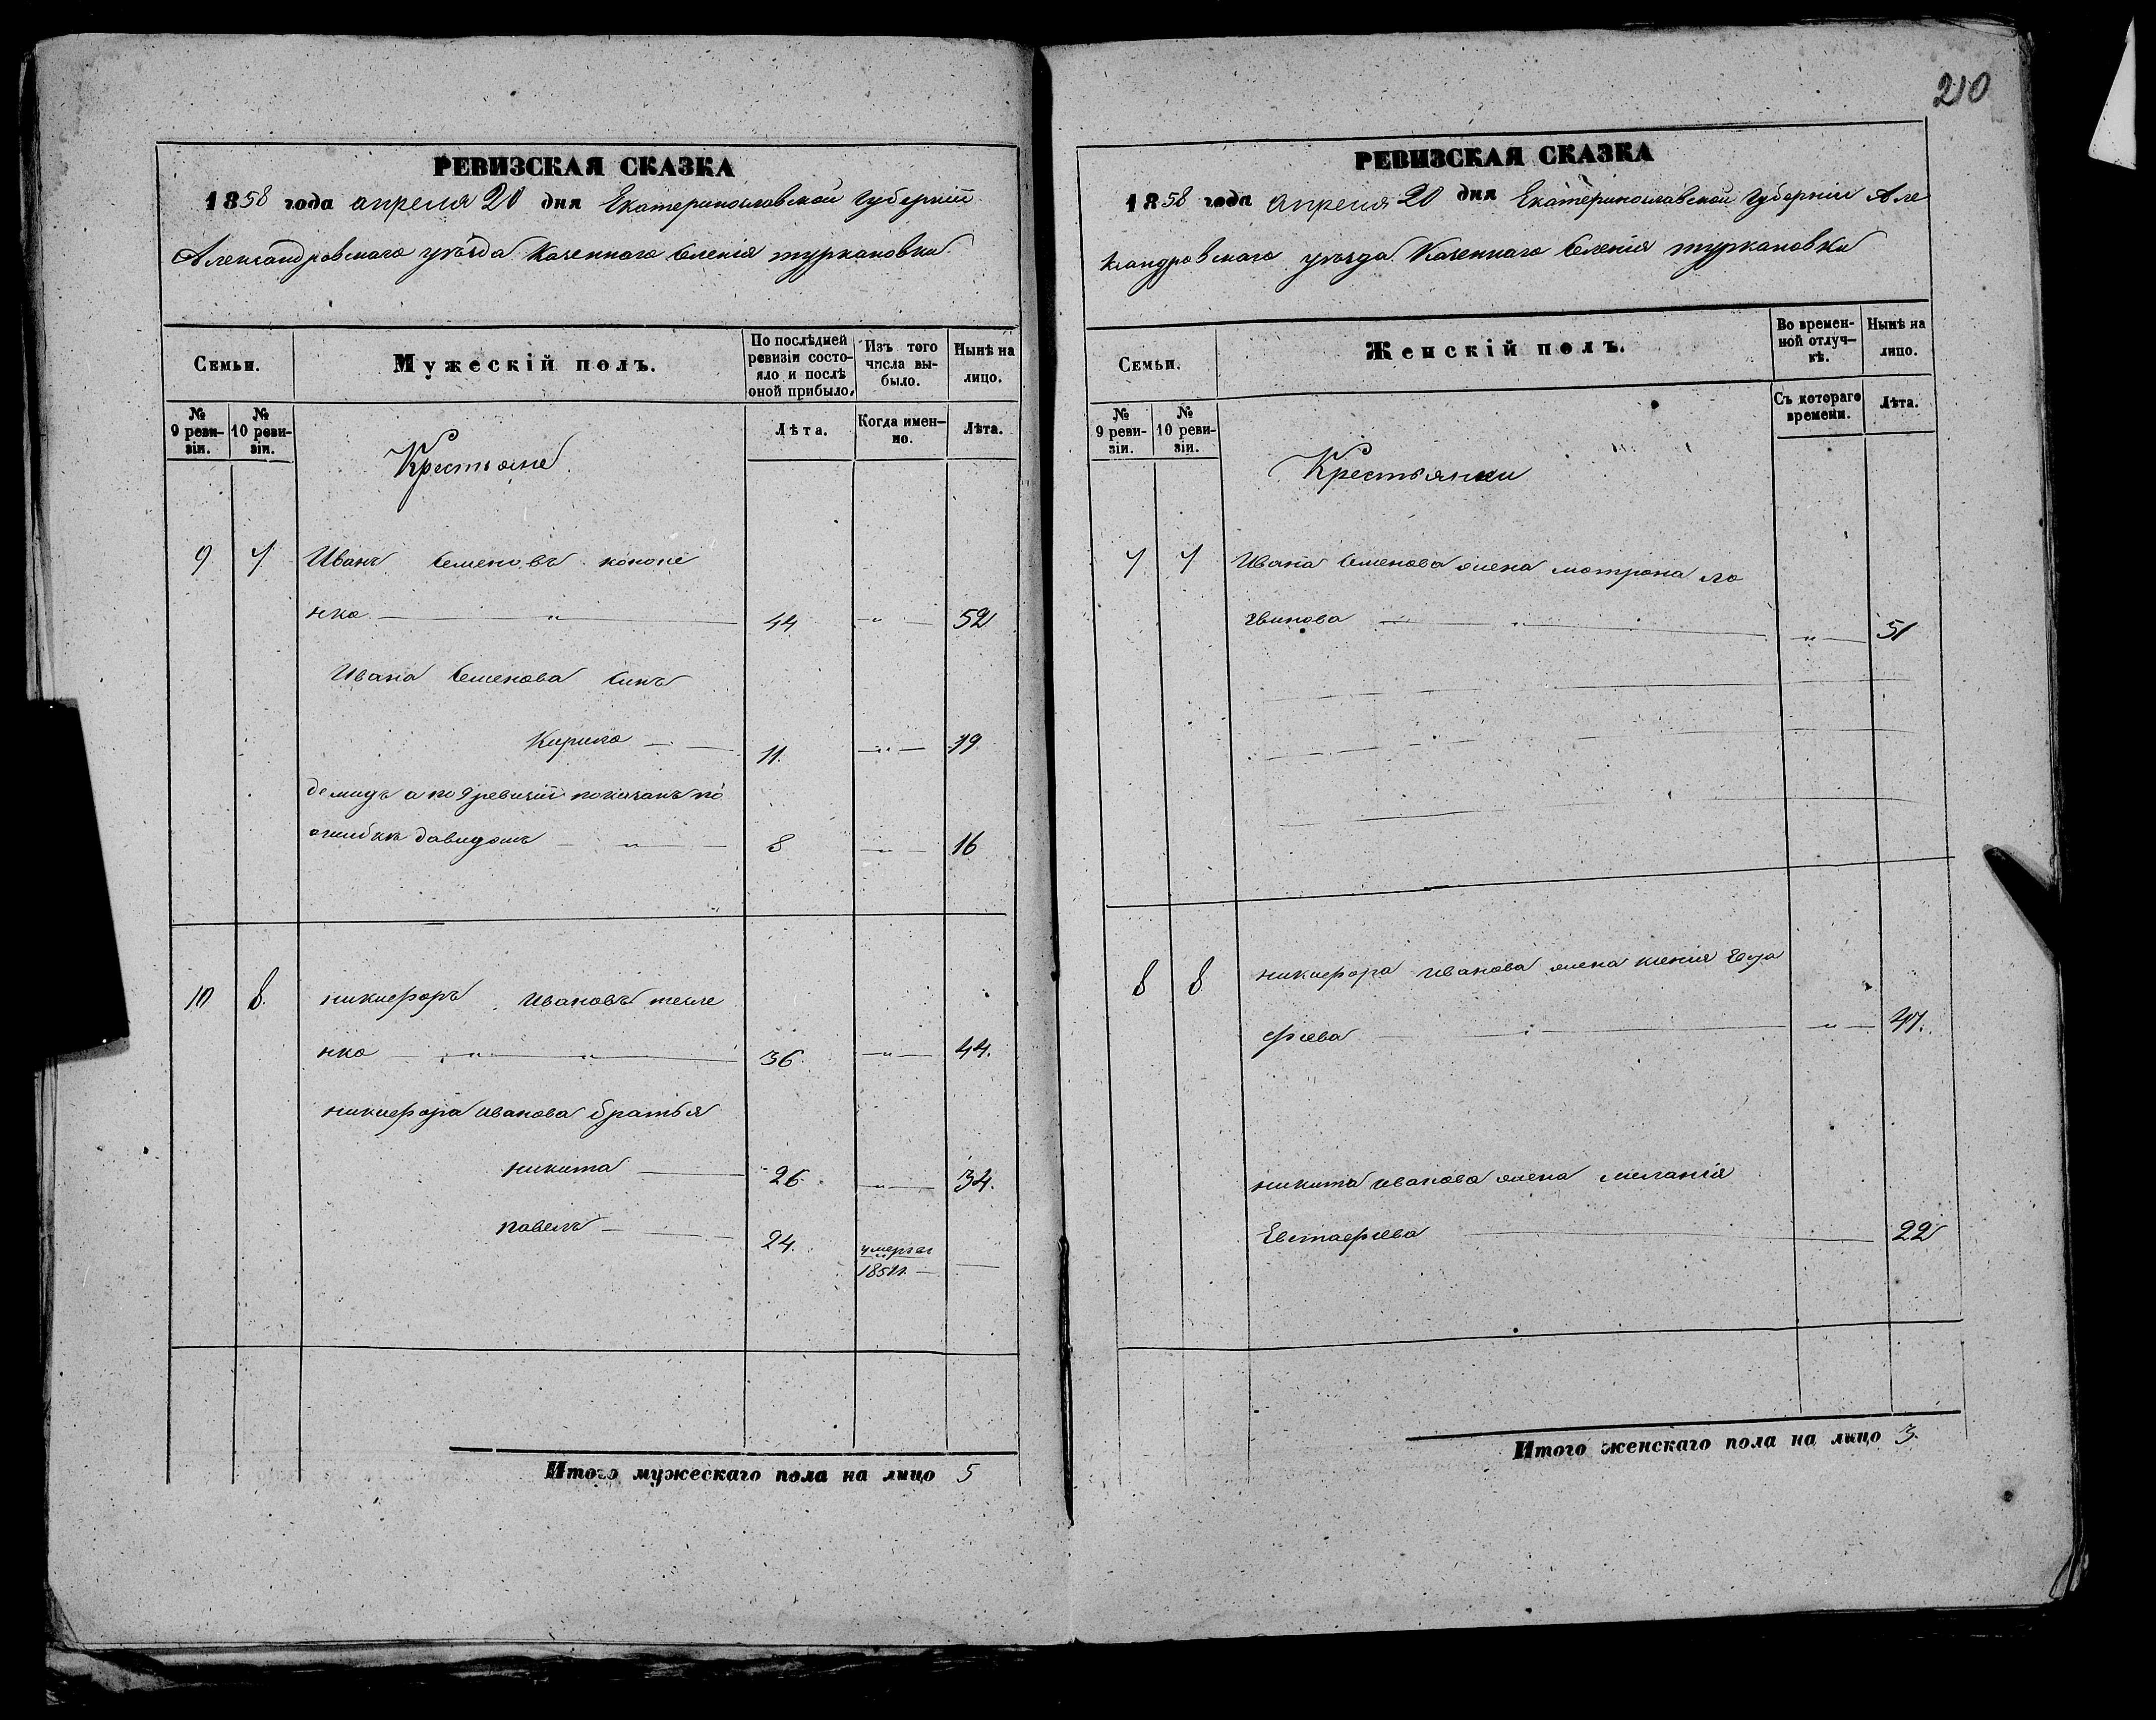 210
РЕВИЗСКАЯ СКАЗКА
1858 года апреля 20 дня Екатеринославской Губерніи
Александровского уѣзда Казенного Селенія туркановки
Семьи.
Мужескій полъ.
По послѣдней ревизіи состояло и послѣ оной прибыло.
Изъ того числа выбыло.
Нынѣ на лицо.
№ 9 ревизіи.
№ 10 ревизіи.
Лѣта.
Когда именно.
Лѣта.
Крестьяне
9 7 Иванъ Семеновъ кононе
нко 44 „ 52
Ивана Семенова Синъ
Кирило 11. „ 19
демидъ а по 9 ревизіи показанъ по
ошибкѣ давидомъ 8 „ 16
10 8. никифоръ Ивановъ
нко 36. „ 44.
никифора иванова братья
никита 26. „ 34.
павелъ 24. умеръ въ
185
Итого мужескаго пола на лицо 5
РЕВИЗСКАЯ СКАЗКА
1858 года апреля 20 дня Екатеринославской Губерніи Але
ксандровского уѣзда Казенного Селенія туркановки
Семьи.
Женскій полъ.
Во временной отлучкѣ.
Нынѣ на лицо.
№ 9 ревизіи.
№ 10 ревизіи.
Съ котораго времени.
Лѣта.
Крестьянки
7 7 Ивана Семенова жена мотрона ло
гвинова „ 51
8 8. никифора иванова жена ксенія
фіева „ 47.
никита иванова жена меланія
Евстафіева 22
Итого женскаго пола на лицо 3.